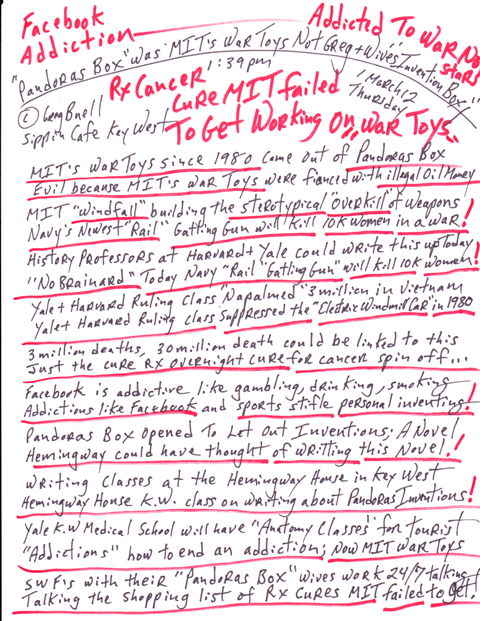 Facebook
Addiction
Addicted To War No
Stars
"Pandoras Box" was MIT's War Toys Not Greg + Wives' Invention Box"
1:39pm
1 March 12
Thursday
© Greg Buell
Sippin Cafe Key West
Rx Cancer
Cure MIT failed
To Get Working On "War Toys"
MIT's War Toys since 1980 came out of Pandoras Box
Evil because MIT's War Toys were fianced with illegal Oil Money
MIT "Windfall" building the sterotypical "overkill" of weapons
Navy's Newest "Rail" Gatting Gun will kill 10K women in a war!
History Professors at Harvard + Yale could write this up Today
"No Brainard" Today Navy "Rail "Gatling Gun" will kill 10K women!
Yale + Harvard Ruling Class "Napalmed" 3 million in Vietnam
Yale + Harvard Ruling class suppressed the "Electric Windmill Car" in 1980
3 million deaths, 30 million death could be linked to this
Just the cure Rx overnight cure for cancer spin off...
Facebook is addictive like gambling, drinking, smoking
Addictions like Facebook and sports stifle personal inventing!
Pandoras Box Opened To Let Out Inventions; A Novel
Hemingway could have thought of writting this Novel!
Writing Classes at the Hemingway House in Key West
Hemingway House K.W. class on writing about Pandoras Inventions!
Yale K.W Medical School will have "Anatomy Classes" for tourist
"Addictions" how to end an addiction; Now MIT War Toys
SWF's with their "Pandoras Box" Wives work 24/7 talking
Talking the shopping list of Rx Cures MIT failed to Get!